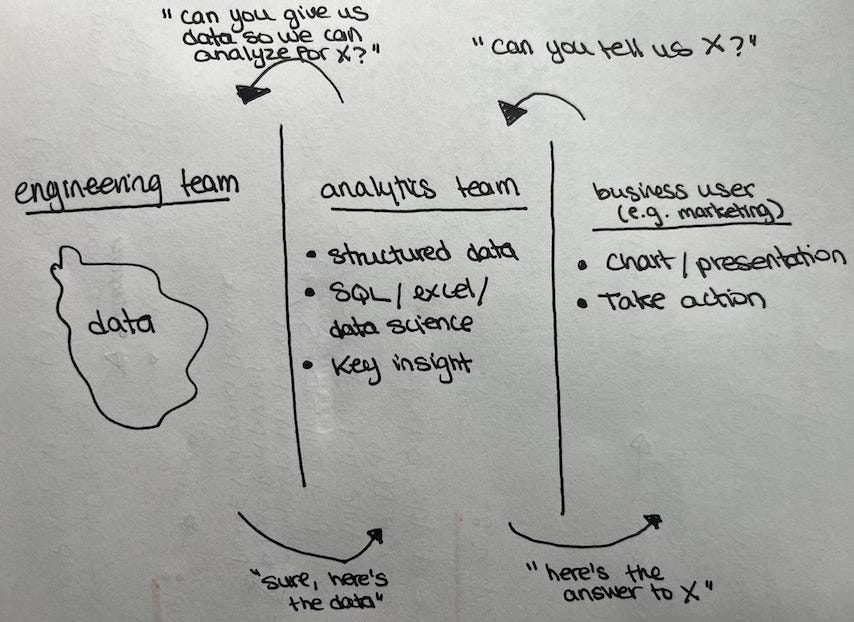 "can you give us
data so we can
analyze for X?"
"can you tell us X?"
engineering team
data
analytics team
• structured data
• SQL/excel/
data science
• Key insight
business user
(e.g. marketing)
• Chart/presentation
• Take action
"sure, here's
the data"
"here's the
answer to X"